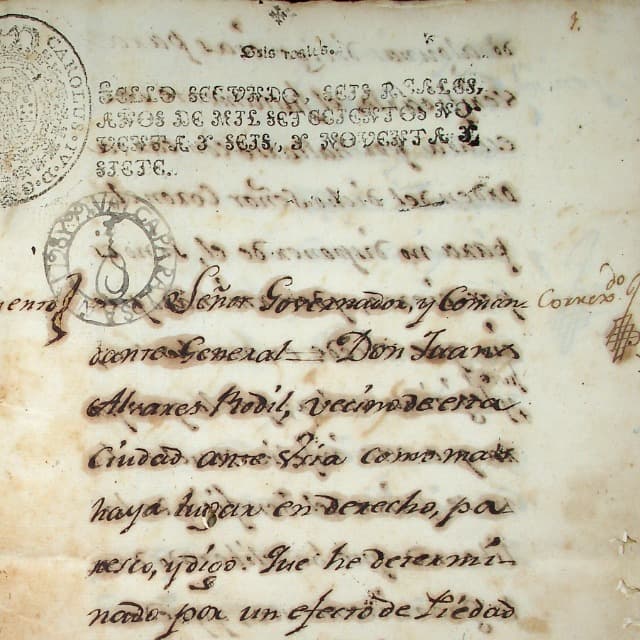 1.
Seis reales.
SELLO SEGVNDO, SEIS REALES,
AÑOS DE MIL SETECIENTOS NO-
VENTA Y SEIS, Y NOVENTA Y
SIETE.
CAROLUS IV D G
Señor Governador, y Coman-
dante General = Don Juan
Alvares Rodil, vecino de esta
Ciudad ante Vsia como mas
haya lugar en derecho, pa-
resco, y digo: Que he determi-
nado por un efecto de Piedad